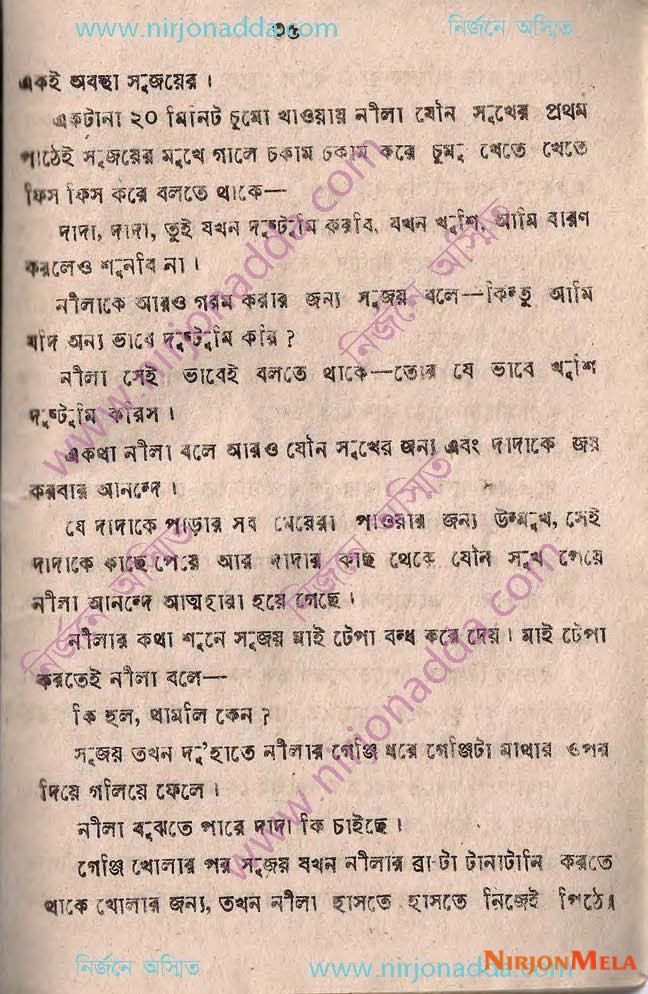 www.nirjonadda.com ৩৫ নির্জনে অস্মিত
একই অবস্থা সুজয়ের।
একটানা ২০ মিনিট চুমো খাওয়ায় নীলা যৌন সুখের প্রথম
পাঠেই সুজয়ের মুখে গালে চকাম চকাম করে চুমু খেতে খেতে
ফিস ফিস করে বলতে থাকে—
দাদা, দাদা, তুই যখন দুষ্টুমি করবি, যখন খুশি, আমি বারণ
করলেও শুনবি না।
নীলাকে আরও গরম করার জন্য সুজয় বলে—কিন্তু আমি
যদি অন্য ভাবে দুষ্টুমি করি?
নীলা সেই ভাবেই বলতে থাকে—তোর যে ভাবে খুশি
দুষ্টুমি করিস।
একথা নীলা বলে আরও যৌন সুখের জন্য এবং দাদাকে জয়
করবার আনন্দে।
যে দাদাকে পাড়ার সব মেয়েরা পাওয়ার জন্য উন্মুখ, সেই
দাদাকে কাছে পেয়ে আর দাদার কাছ থেকে যৌন সুখ পেয়ে
নীলা আনন্দে আত্মহারা হয়ে গেছে।
নীলার কথা শুনে সুজয় মাই টেপা বন্ধ করে দেয়। মাই টেপা
করতেই নীলা বলে—
কি হল, থামলি কেন?
সুজয় তখন দু'হাতে নীলার গেঞ্জি ধরে গেঞ্জিটা মাথার ওপর
দিয়ে গলিয়ে ফেলে।
নীলা বুঝতে পারে দাদা কি চাইছে।
গেঞ্জি খোলার পর সুজয় যখন নীলার ব্রা-টা টানাটানি করতে
থাকে খোলার জন্য, তখন নীলা হাসতে হাসতে নিজেই পিঠে।
NIRJONMELA
নির্জনে অস্মিত www.nirjonadda.com